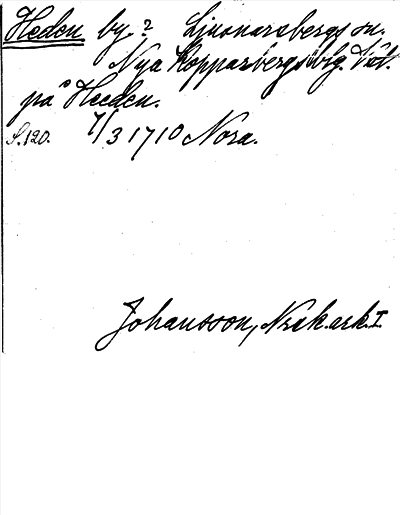 Heden by? Ljusnarsbergs sn.
Nya Kopparbergs blg.
på Heeden.
S. 120. 7/3 1710 Nora.
Johansson, Nrik. ark. I